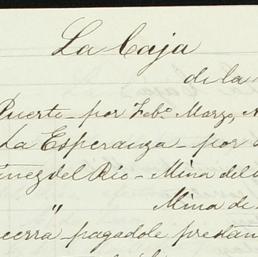 La Caja
de la
Puerto - por Feb.o Marzo,
La Esperanza - por
inez del Rio - Mina del
" Mina de
ecerra pagadole prestam